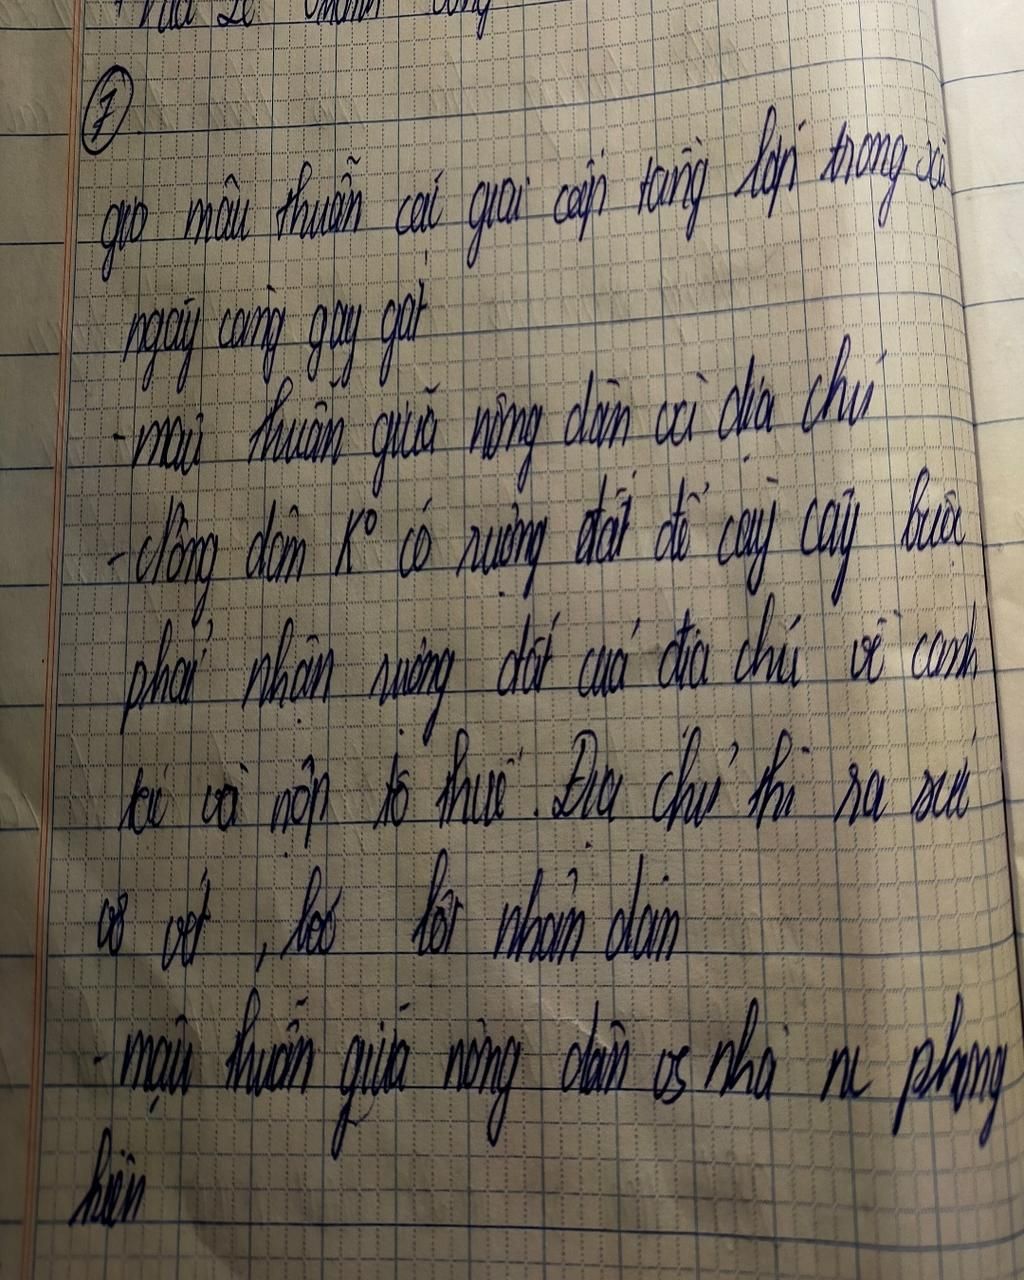 ⑦
mâu thuẫn các giai cấp tầng lớp trong xã
ngày càng gay gắt
- mâu thuẫn giữa nông dân và địa chủ
- Nông dân K° có ruộng đất để cày cấy buộc
phải nhận ruộng đất của địa chủ về canh
tác và nộp tô thuế. Địa chủ thì ra sức
vơ vét, bóc lột nhân dân
- mâu thuẫn giữa nông dân vs nhà nc phong
kiến